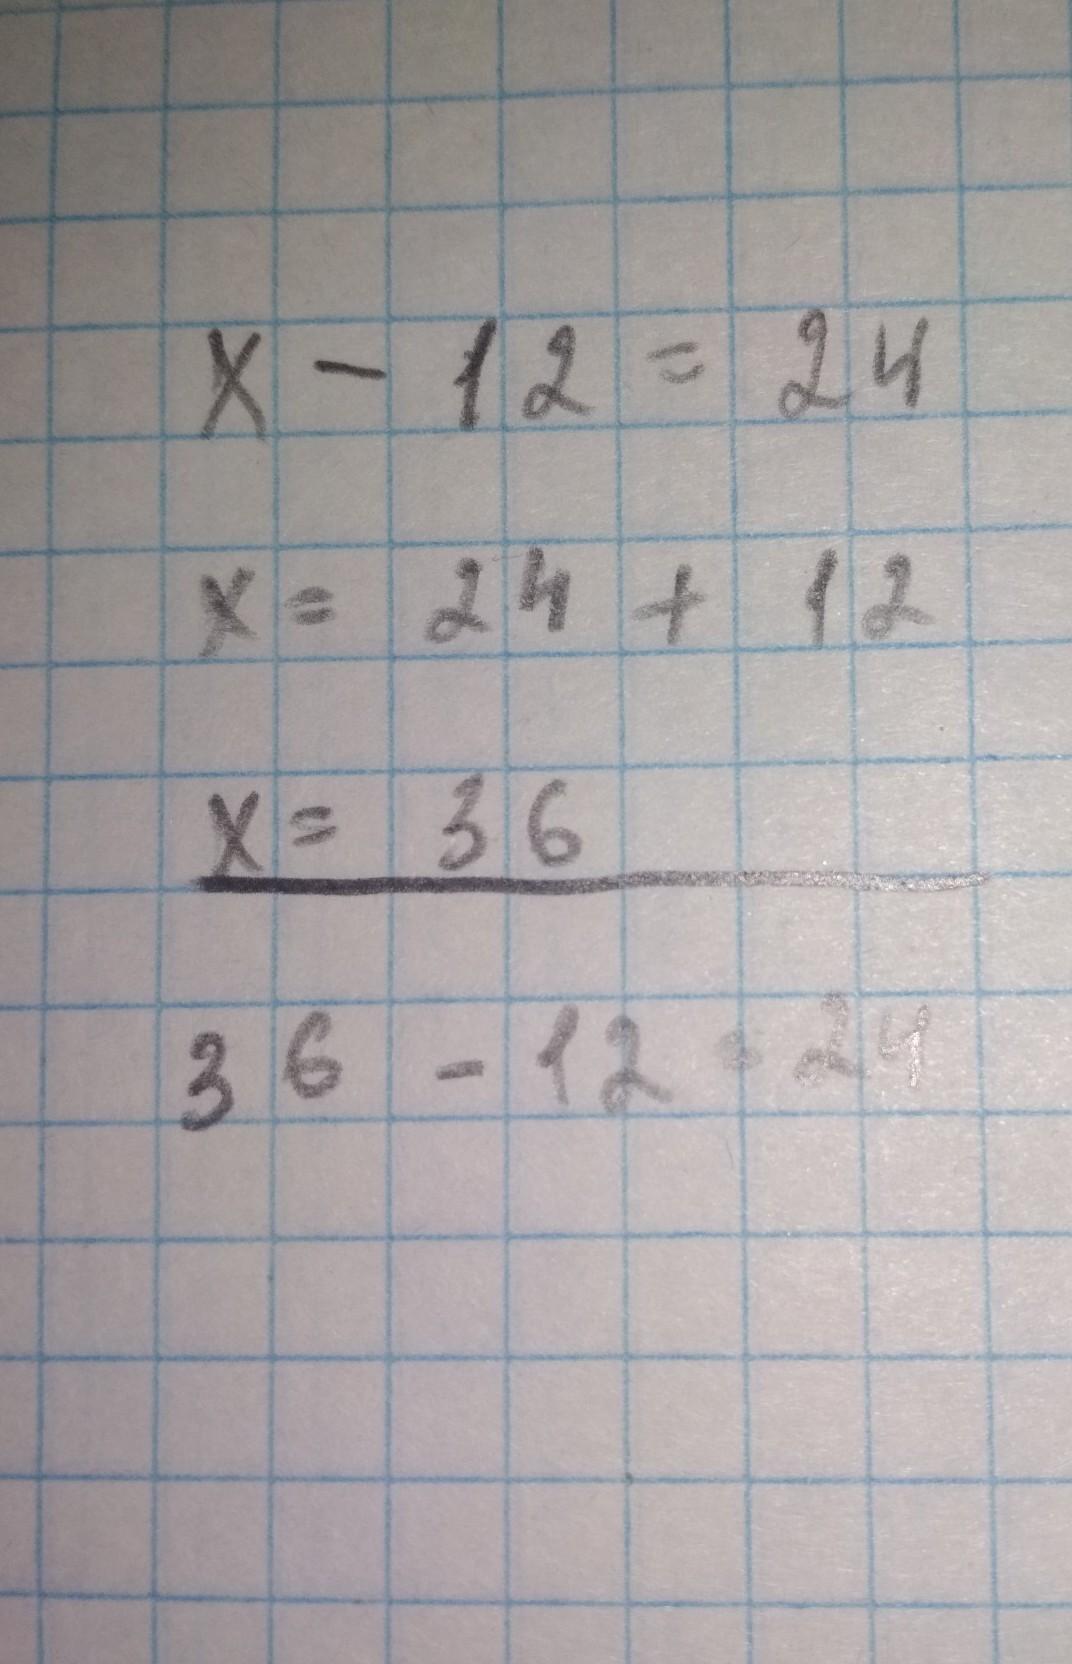 x - 12 = 24
x = 24 + 12
x = 36
36 - 12 = 24